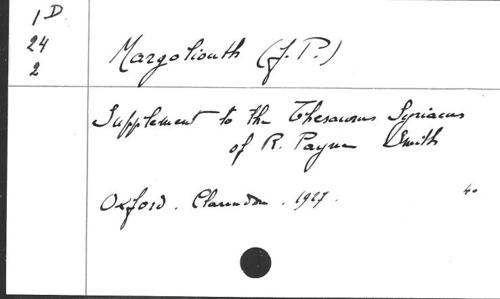 1D
24
2
Margoliouth (J. P.)
Supplement to the Thesaurus Syriacus
of R. Payne Smith
Oxford. Clarendon. 1927.
4o